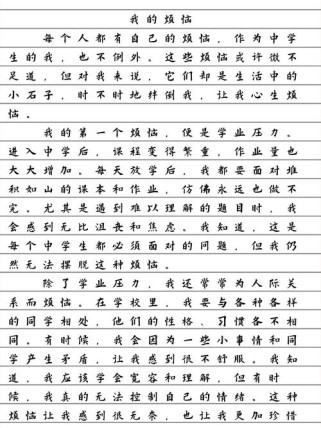 我的烦恼
每个人都有自己的烦恼，作为中学
生的我，也不例外。这些烦恼或许微不
足道，但对我来说，它们却是生活中的
小石子，时不时地绊倒我，让我心生烦
恼。
我的第一个烦恼，便是学业压力。
进入中学后，课程变得繁重，作业量也
大大增加。每天放学后，我都要面对堆
积如山的课本和作业，仿佛永远也做不
完。尤其是遇到难以理解的题目时，我
会感到无比沮丧和焦虑。我知道，这是
每个中学生都必须面对的问题，但我仍
然无法摆脱这种烦恼。
除了学业压力，我还常常为人际关
系而烦恼。在学校里，我要与各种各样
的同学相处，他们的性格、习惯各不相
同。有时候，我会因为一些小事情和同
学产生矛盾，让我感到很不舒服。我知
道，我应该学会宽容和理解，但有时
候，我真的无法控制自己的情绪。这种
烦恼让我感到很无奈，也让我更加珍惜